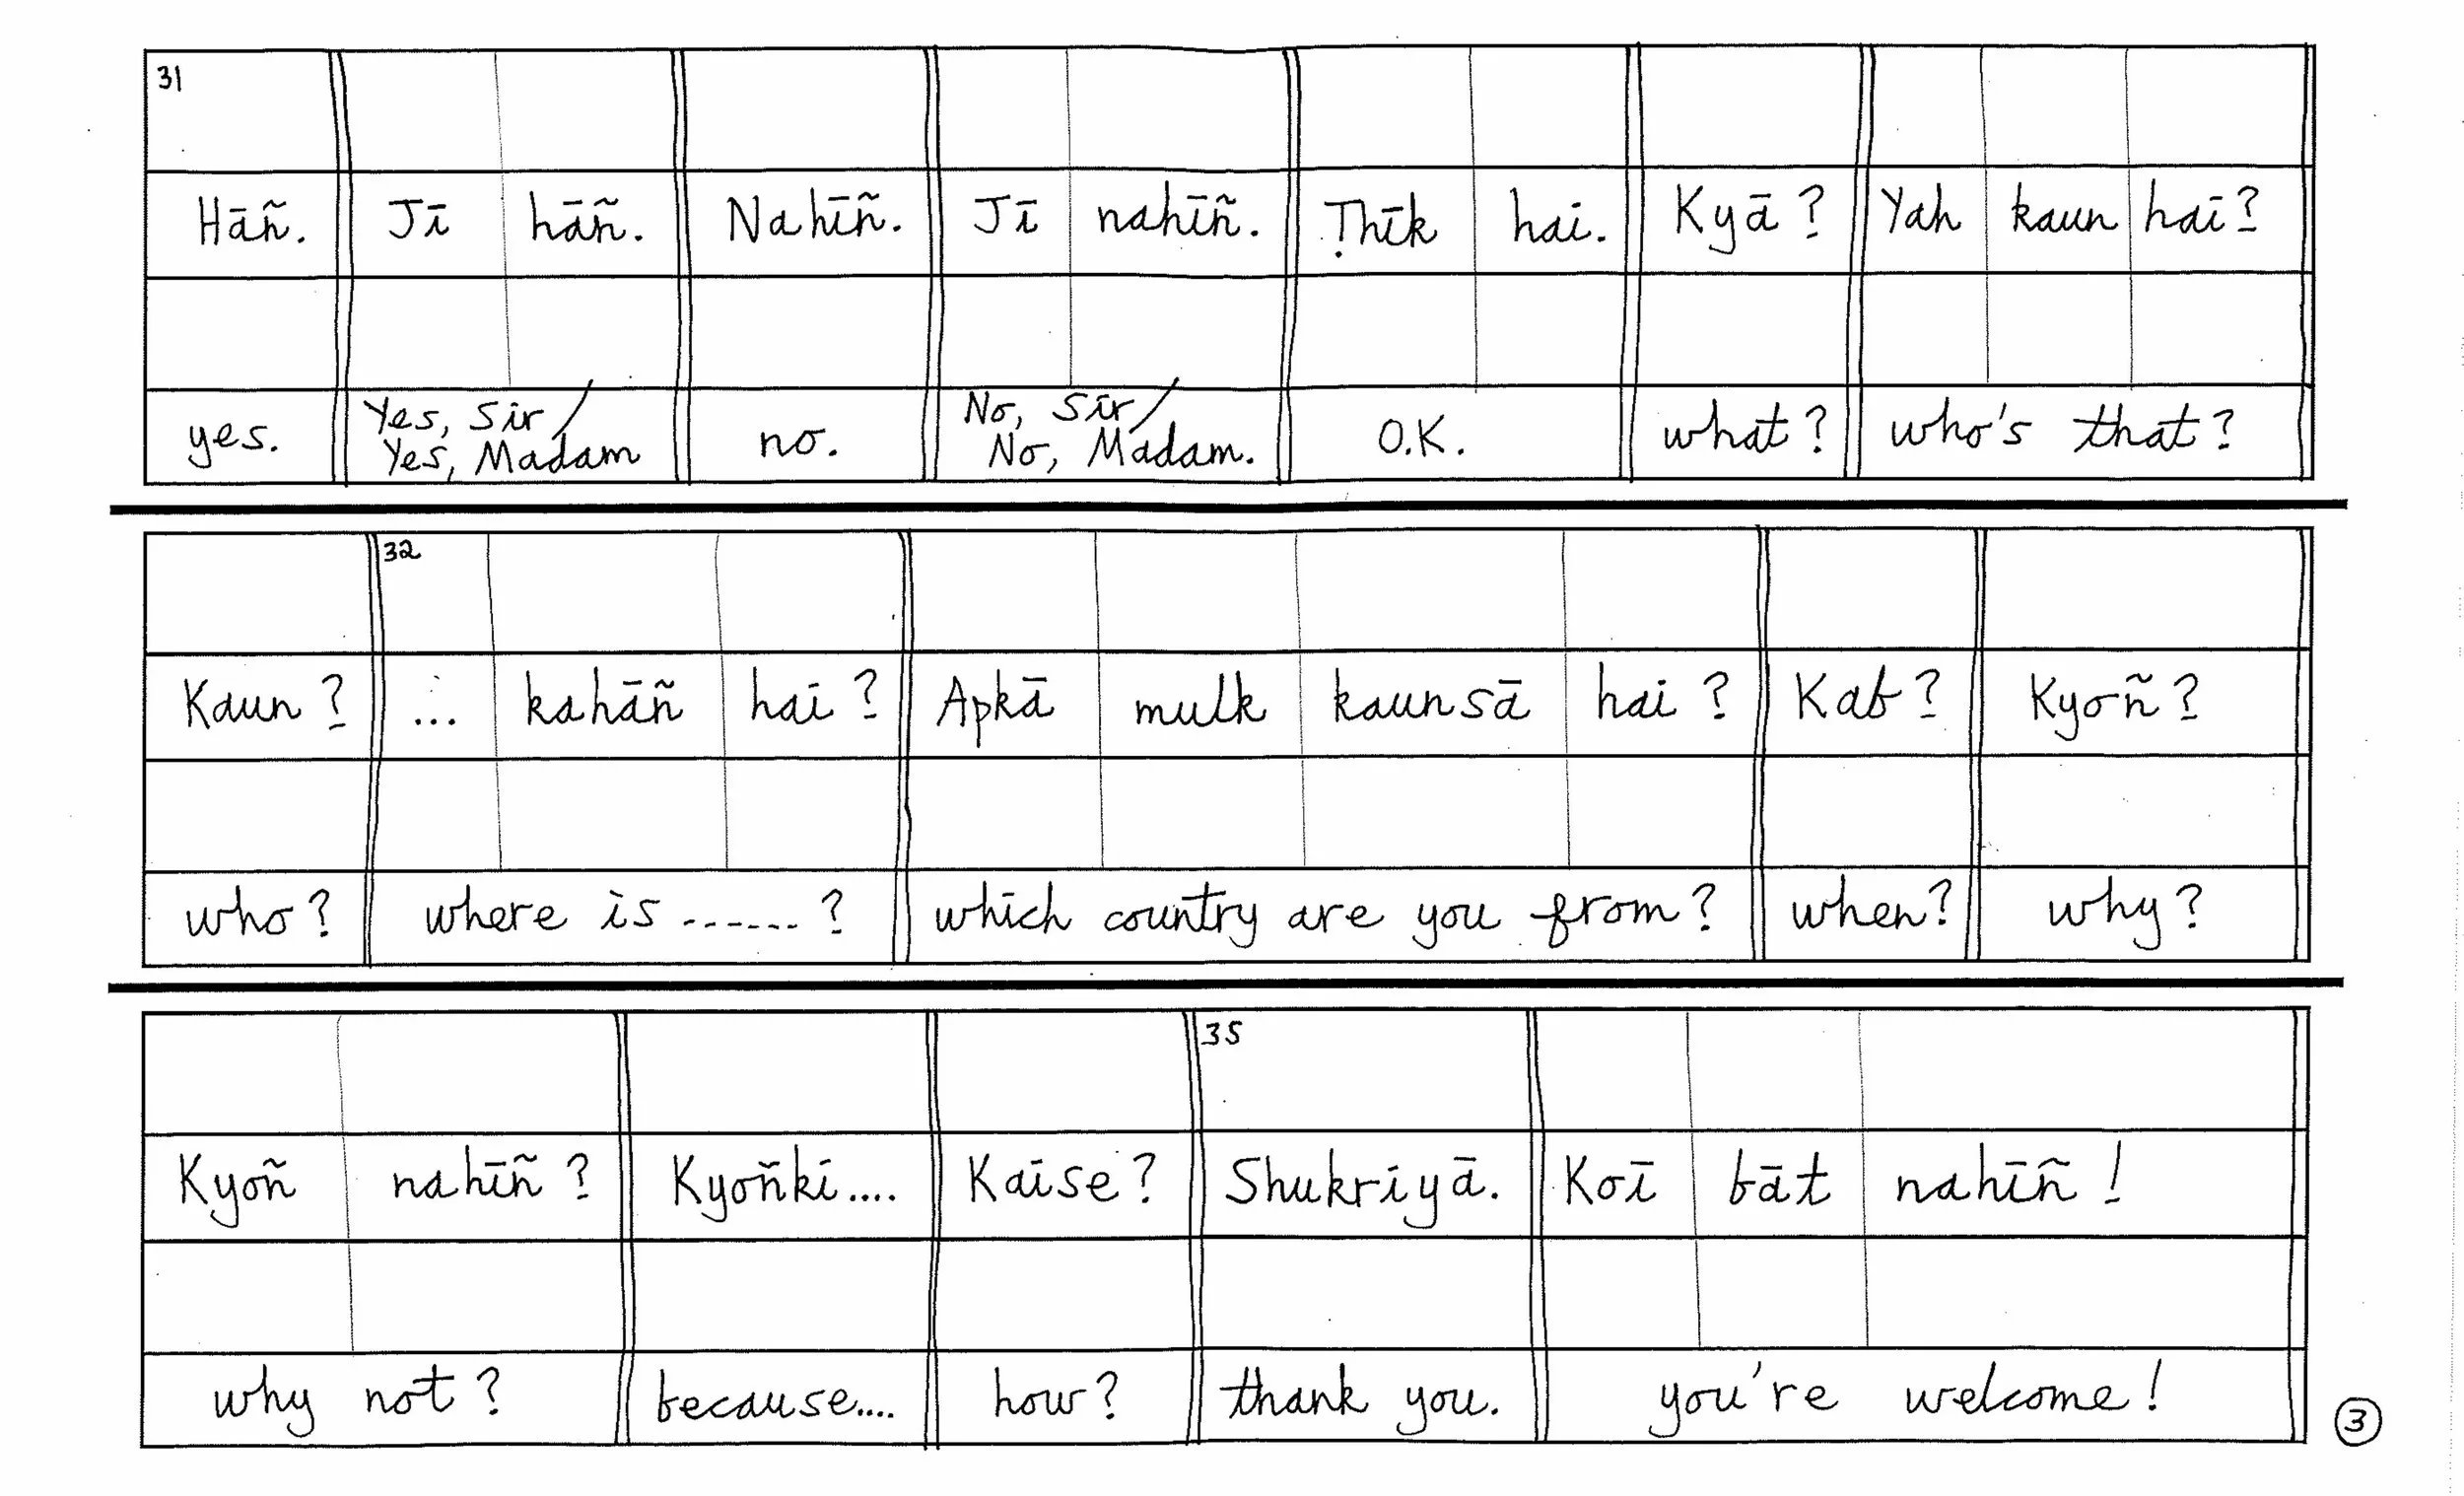 31
Hāñ. Jī hāñ. Nahīñ. Jī nahīñ. Ṭhīk hai. Kyā? Yah kaun hai?
yes. Yes, Sir/ Yes, Madam no. No, Sir/ No, Madam. O.K. what? who's that?
32
Kaun? ... kahāñ hai? Apkā mulk kaunsā hai? Kab? Kyoñ?
who? where is ------? which country are you from? when? why?
35
Kyoñ nahīñ? Kyoñki.... Kaise? Shukriyā. Koī bāt nahīñ!
why not? because.... how? thank you. you're welcome!
3